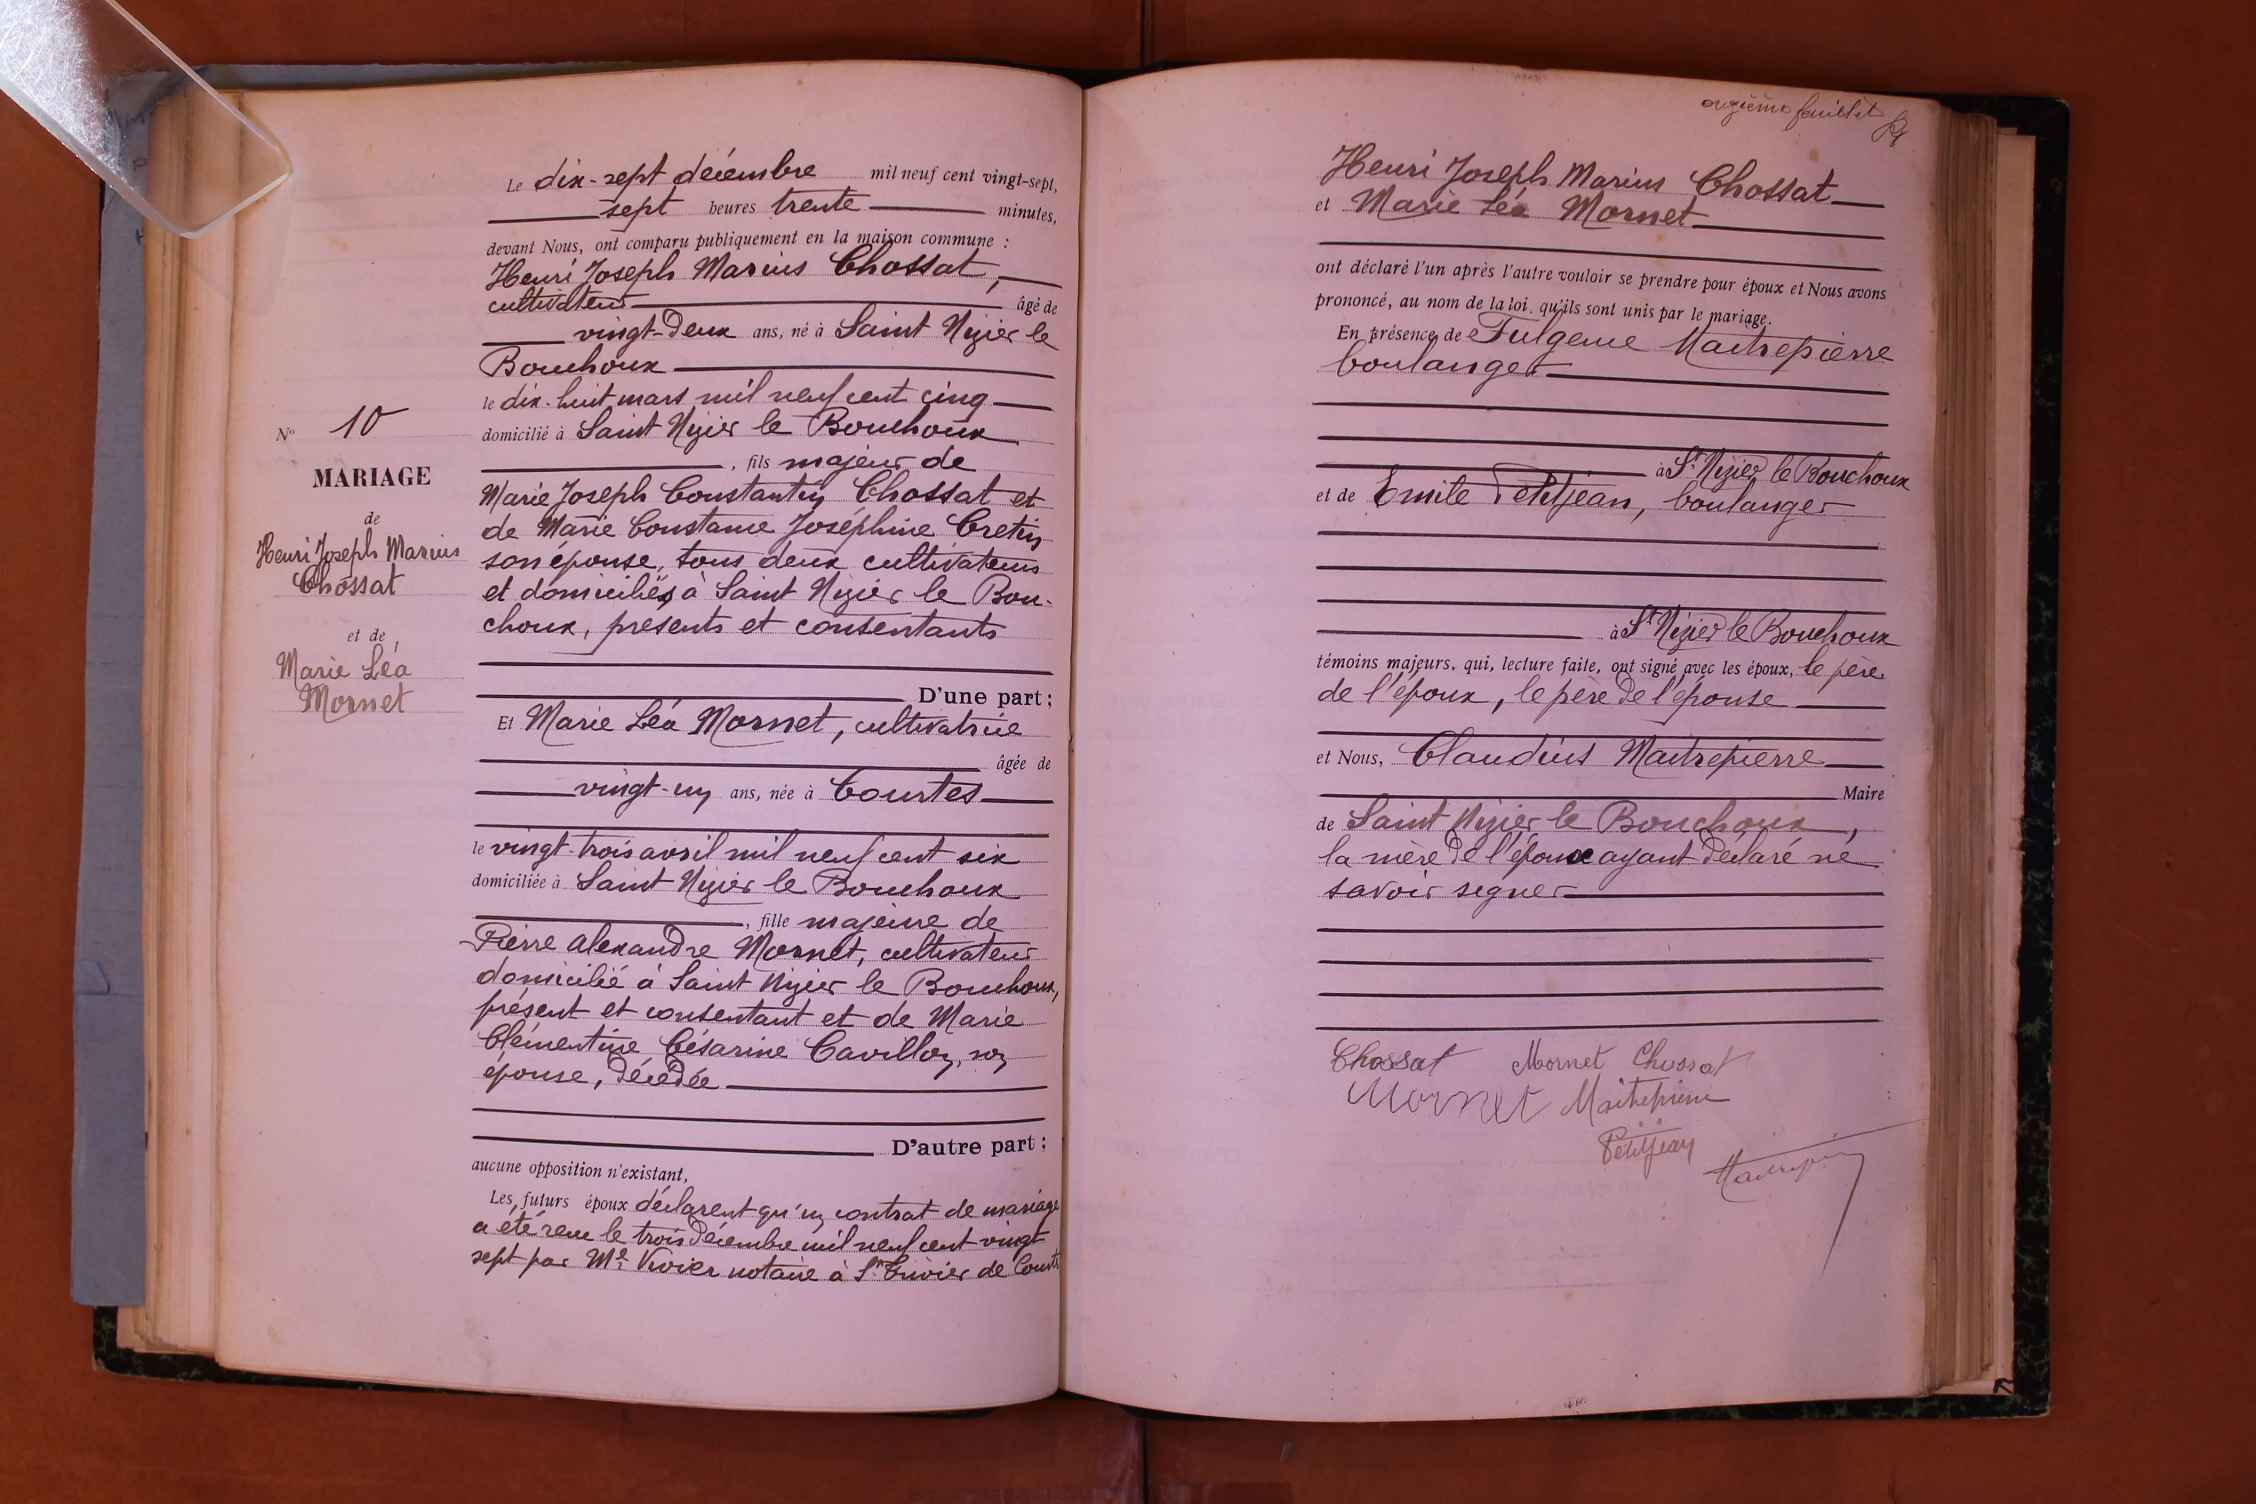 Le dix-sept décembre mil neuf cent vingt-sept,
sept heures trente minutes,
devant Nous, ont comparu publiquement en la maison commune :
Henri Joseph Marius Chossat,
cultivateur âgé de
vingt-deux ans, né à Saint Nizier le
Bouchoux
le dix-huit mars mil neuf cent cinq
domicilié à Saint Nizier le Bouchoux
, fils majeur de
Marie Joseph Constantin Chossat et
de Marie Constance Joséphine Cretin
son épouse, tous deux cultivateurs
et domiciliés à Saint Nizier le Bou-
choux, présents et consentants
D'une part ;
Et Marie Léa Mornet, cultivatrice
âgée de
vingt-un ans, née à Courtes
le vingt-trois avril mil neuf cent six
domiciliée à Saint Nizier le Bouchoux
, fille majeure de
Pierre Alexandre Mornet, cultivateur
domicilié à Saint Nizier le Bouchoux,
présent et consentant et de Marie
Clémentine Césarine Cavillon, son
épouse, décédée
D'autre part ;
aucune opposition n'existant,
Les futurs époux déclarent qu'un contrat de mariage
a été reçu le trois décembre mil neuf cent vingt
sept par Me Vivier notaire à St Trivier de Courtes
No 10
MARIAGE
de
Henri Joseph Marius
Chossat
et de
Marie Léa
Mornet
onzième feuillet
Henri Joseph Marius Chossat
et Marie Léa Mornet
ont déclaré l'un après l'autre vouloir se prendre pour époux et Nous avons
prononcé, au nom de la loi, qu'ils sont unis par le mariage.
En présence de Fulgence Maitrepierre
boulanger
à St Nizier le Bouchoux
et de Emile Petitjean, boulanger
à St Nizier le Bouchoux
témoins majeurs, qui, lecture faite, ont signé avec les époux, le père
de l'époux, le père de l'épouse
et Nous, Claudius Maitrepierre
Maire
de Saint Nizier le Bouchoux,
la mère de l'époux ayant déclaré ne
savoir signer
Chossat Mornet Chossat
Mornet Maitrepierre
Petitjean
Maitrepierre